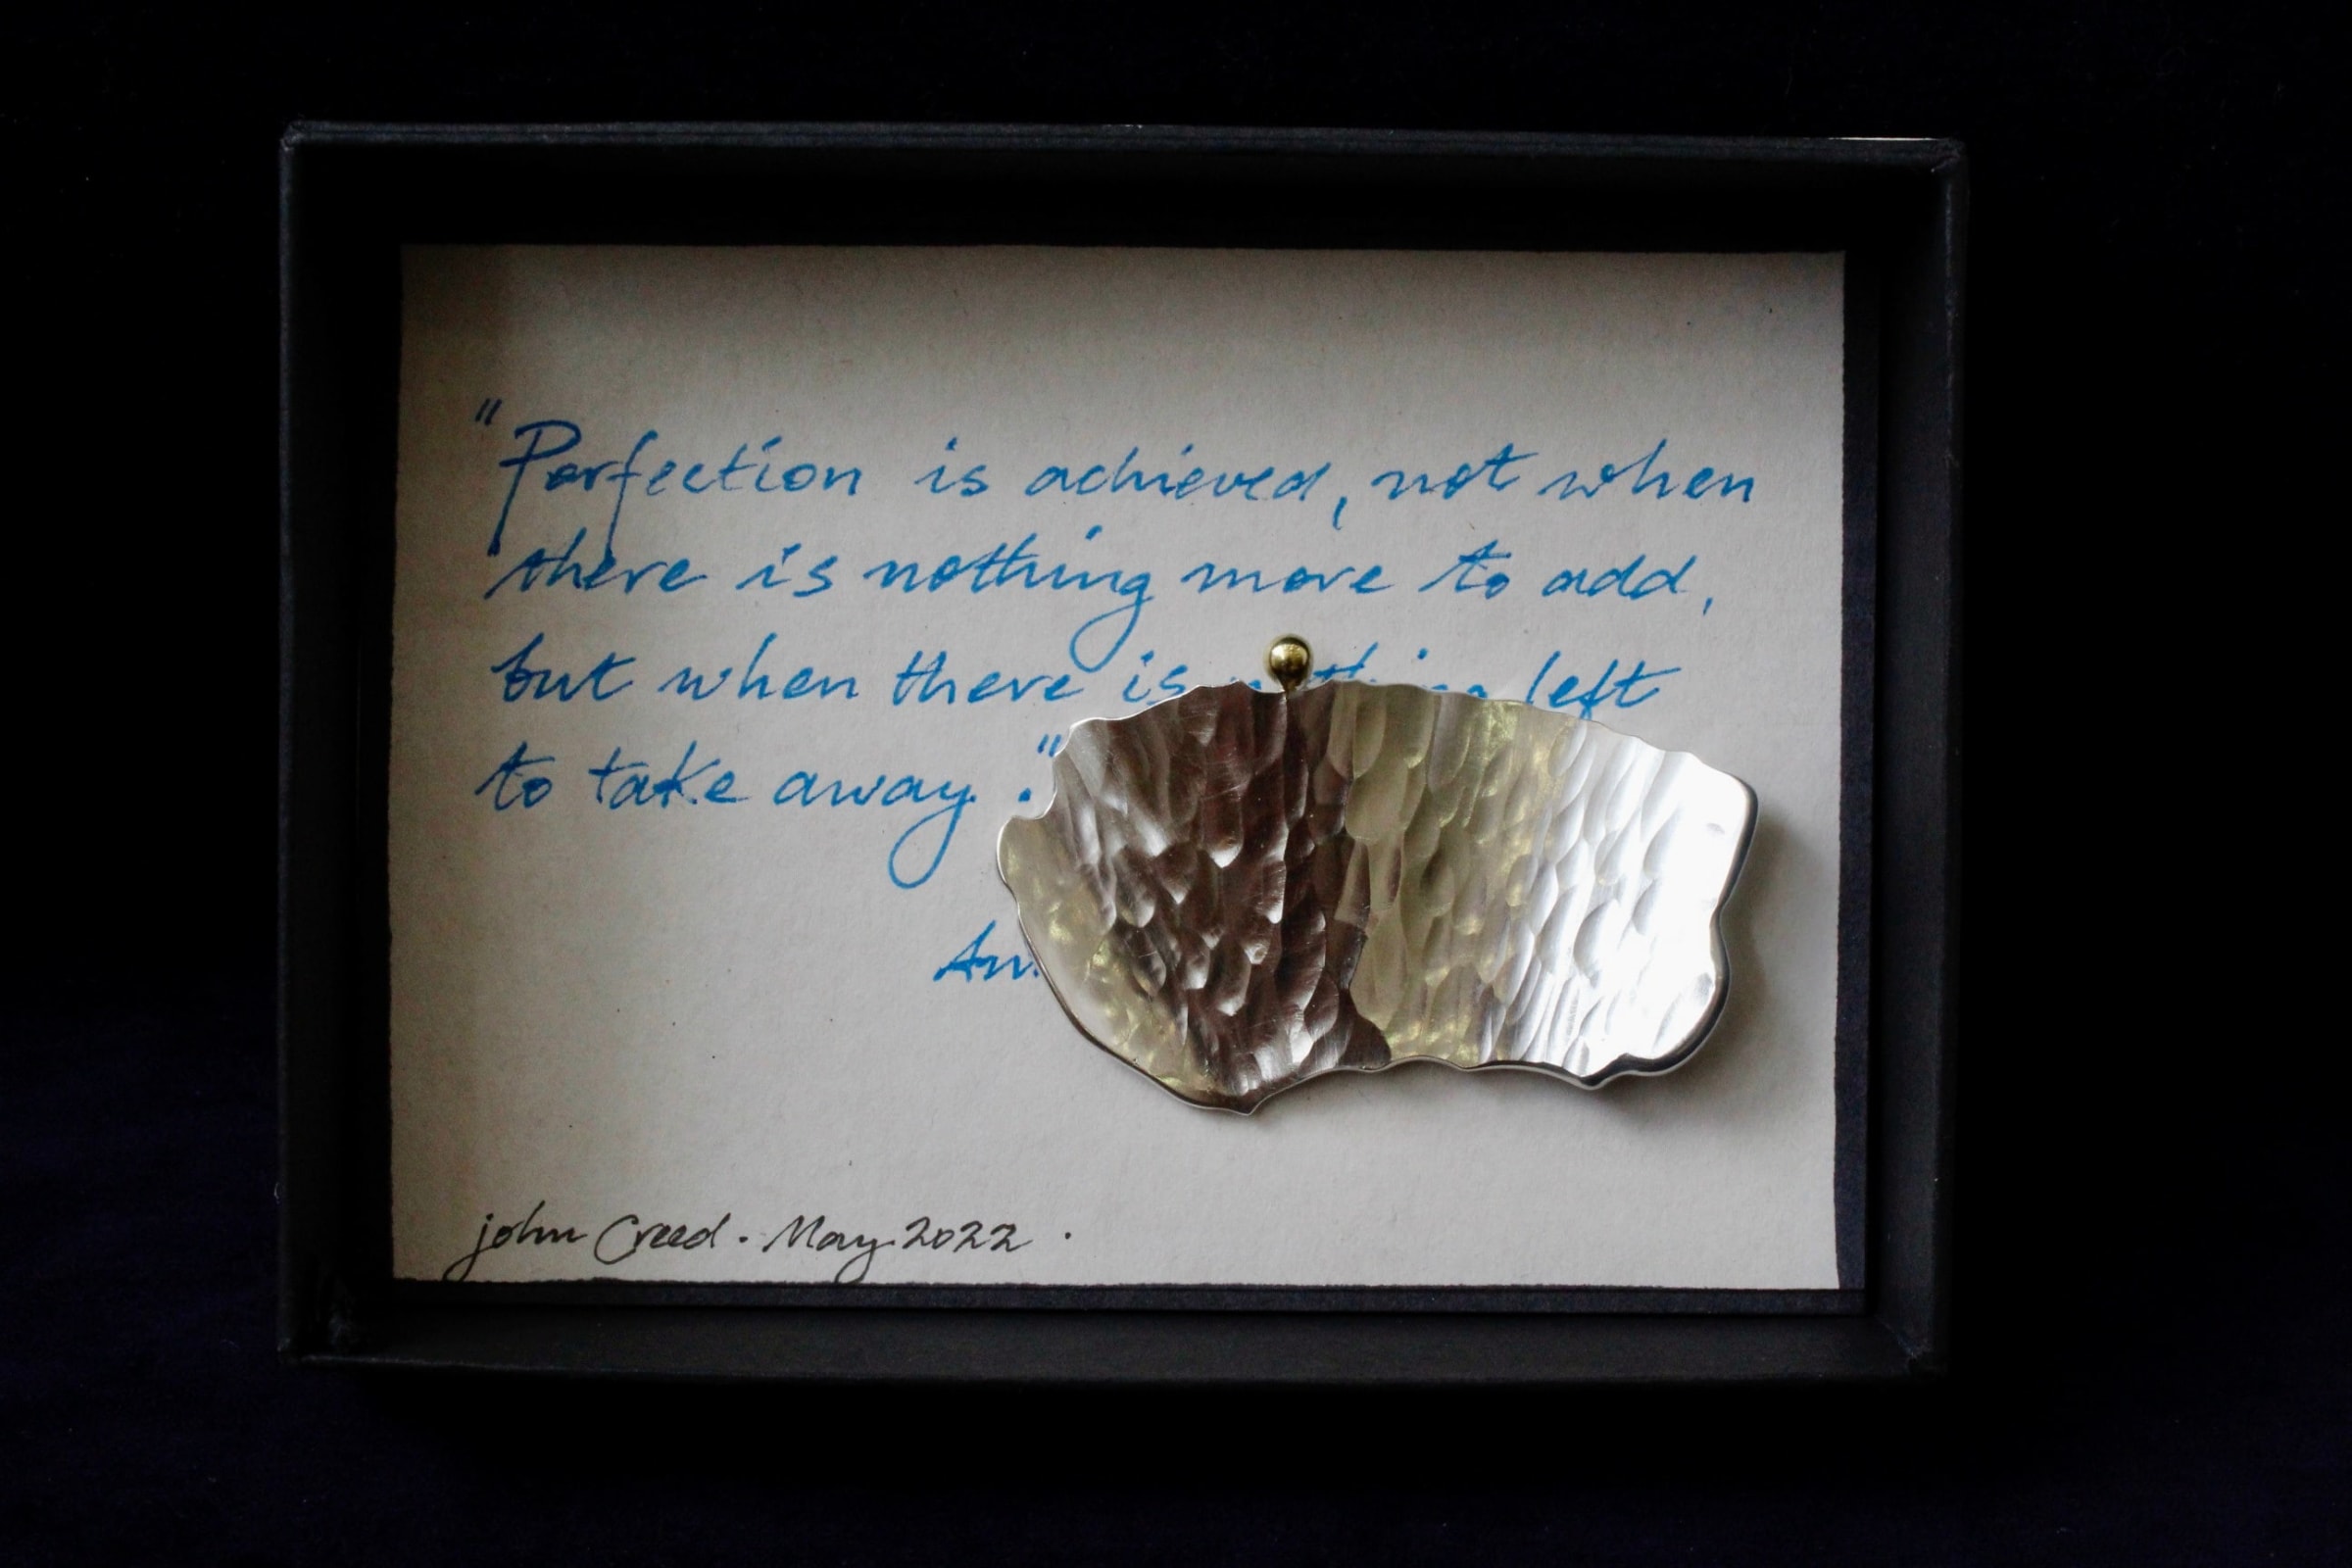 "Perfection is achieved, not when
there is nothing more to add,
but when there is nothing left
to take away."
john Creed. May 2022.